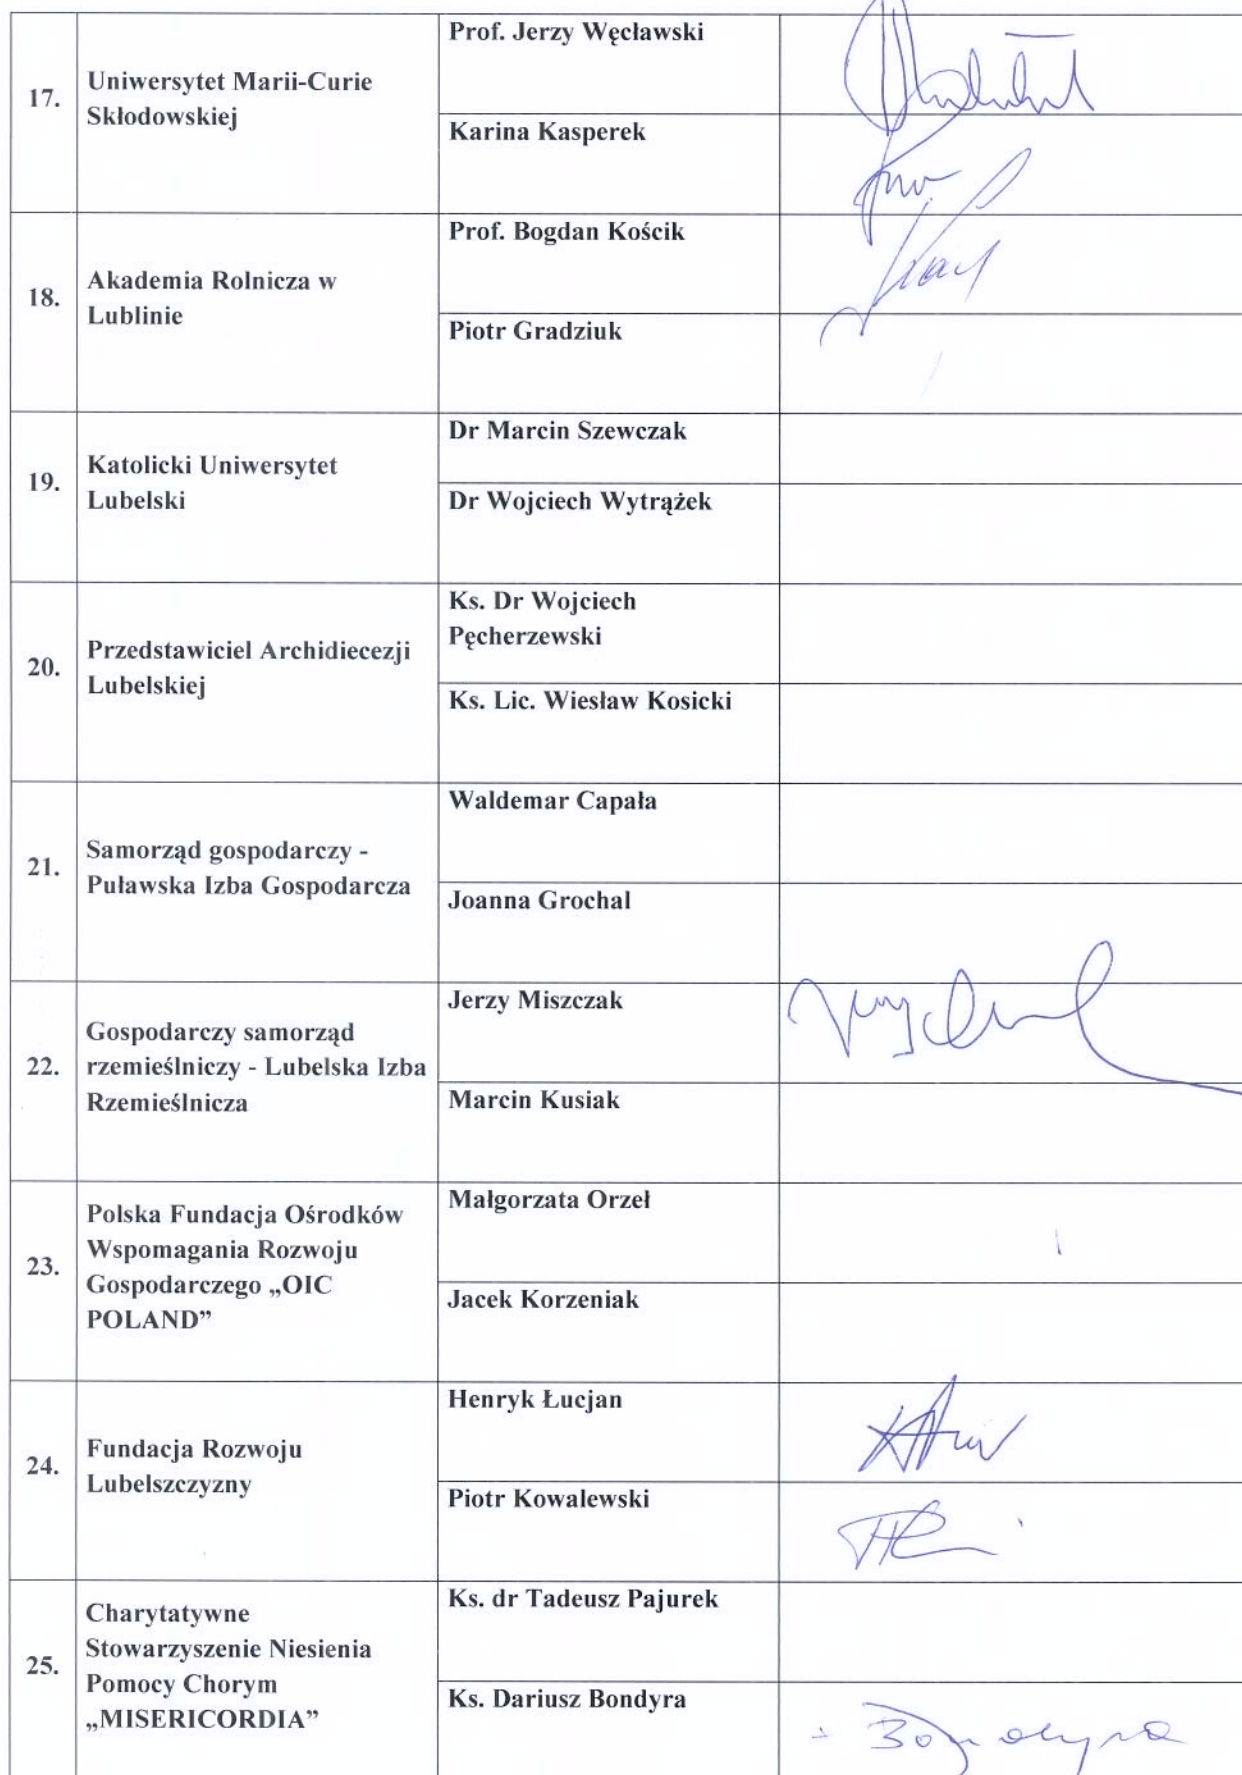 17.
Uniwersytet Marii-Curie
Skłodowskiej
Prof. Jerzy Węcławski
Karina Kasperek
18.
Akademia Rolnicza w
Lublinie
Prof. Bogdan Kościk
Piotr Gradziuk
19.
Katolicki Uniwersytet
Lubelski
Dr Marcin Szewczak
Dr Wojciech Wytrążek
20.
Przedstawiciel Archidiecezji
Lubelskiej
Ks. Dr Wojciech
Pęcherzewski
Ks. Lic. Wiesław Kosicki
21.
Samorząd gospodarczy -
Puławska Izba Gospodarcza
Waldemar Capała
Joanna Grochal
22.
Gospodarczy samorząd
rzemieślniczy - Lubelska Izba
Rzemieślnicza
Jerzy Miszczak
Marcin Kusiak
23.
Polska Fundacja Ośrodków
Wspomagania Rozwoju
Gospodarczego „OIC
POLAND”
Małgorzata Orzeł
Jacek Korzeniak
24.
Fundacja Rozwoju
Lubelszczyzny
Henryk Łucjan
Piotr Kowalewski
25.
Charytatywne
Stowarzyszenie Niesienia
Pomocy Chorym
„MISERICORDIA”
Ks. dr Tadeusz Pajurek
Ks. Dariusz Bondyra
Bondyra